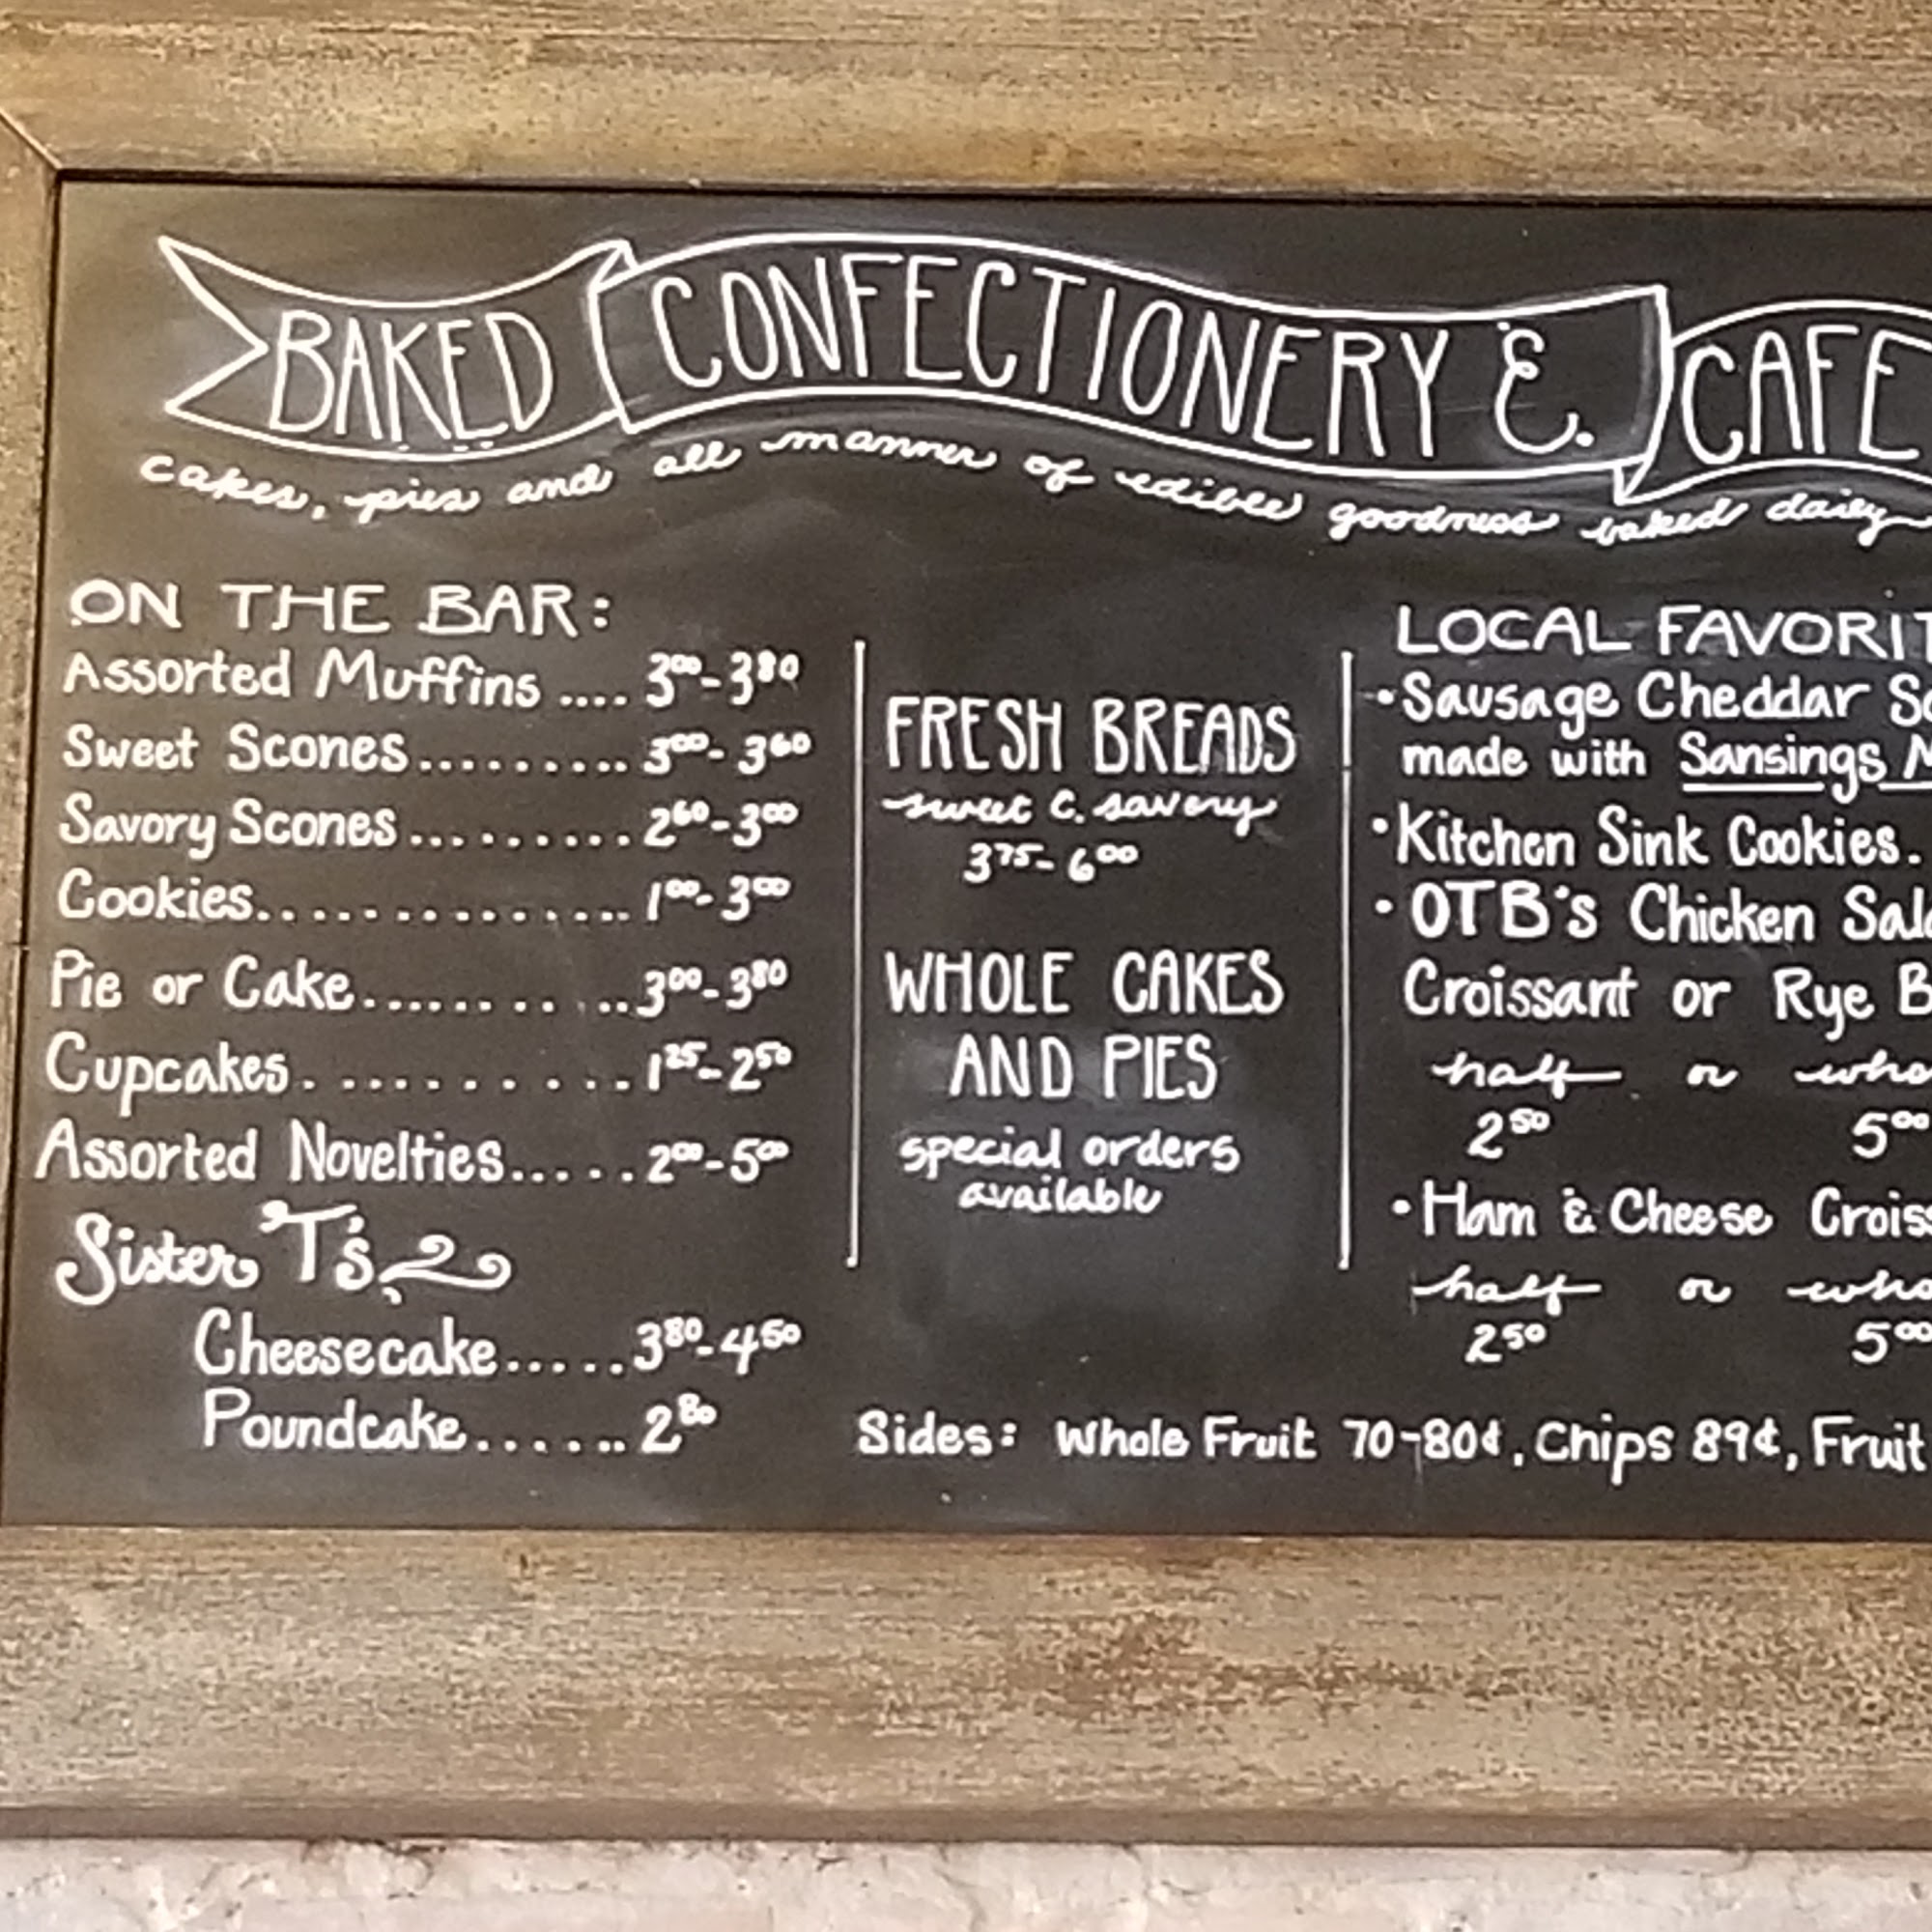 BAKED CONFECTIONERY &. CAFE
cakes, pies and all manner of edible goodness baked daily
ON THE BAR:
Assorted Muffins .... 3⁰⁰-3⁸⁰
Sweet Scones......... 3⁰⁰-3⁶⁰
Savory Scones......... 2⁶⁰-3⁰⁰
Cookies.............. 1⁰⁰-3⁰⁰
Pie or Cake........... 3⁰⁰-3⁸⁰
Cupcakes........... 1²⁵-2⁵⁰
Assorted Novelties..... 2⁰⁰-5⁰⁰
Sister T's
Cheesecake..... 3⁸⁰-4⁵⁰
Poundcake...... 2⁸⁰
FRESH BREADS
sweet & savory
3⁷⁵-6⁰⁰
WHOLE CAKES
AND PIES
special orders
available
LOCAL FAVORIT
• Sausage Cheddar Sc
made with Sansings M
• Kitchen Sink Cookies.
• OTB's Chicken Sala
Croissant or Rye B
half or who
2⁵⁰ 5⁰⁰
• Ham & Cheese Croiss
half or who
2⁵⁰ 5⁰⁰
Sides: Whole Fruit 70-80¢, Chips 89¢, Fruit